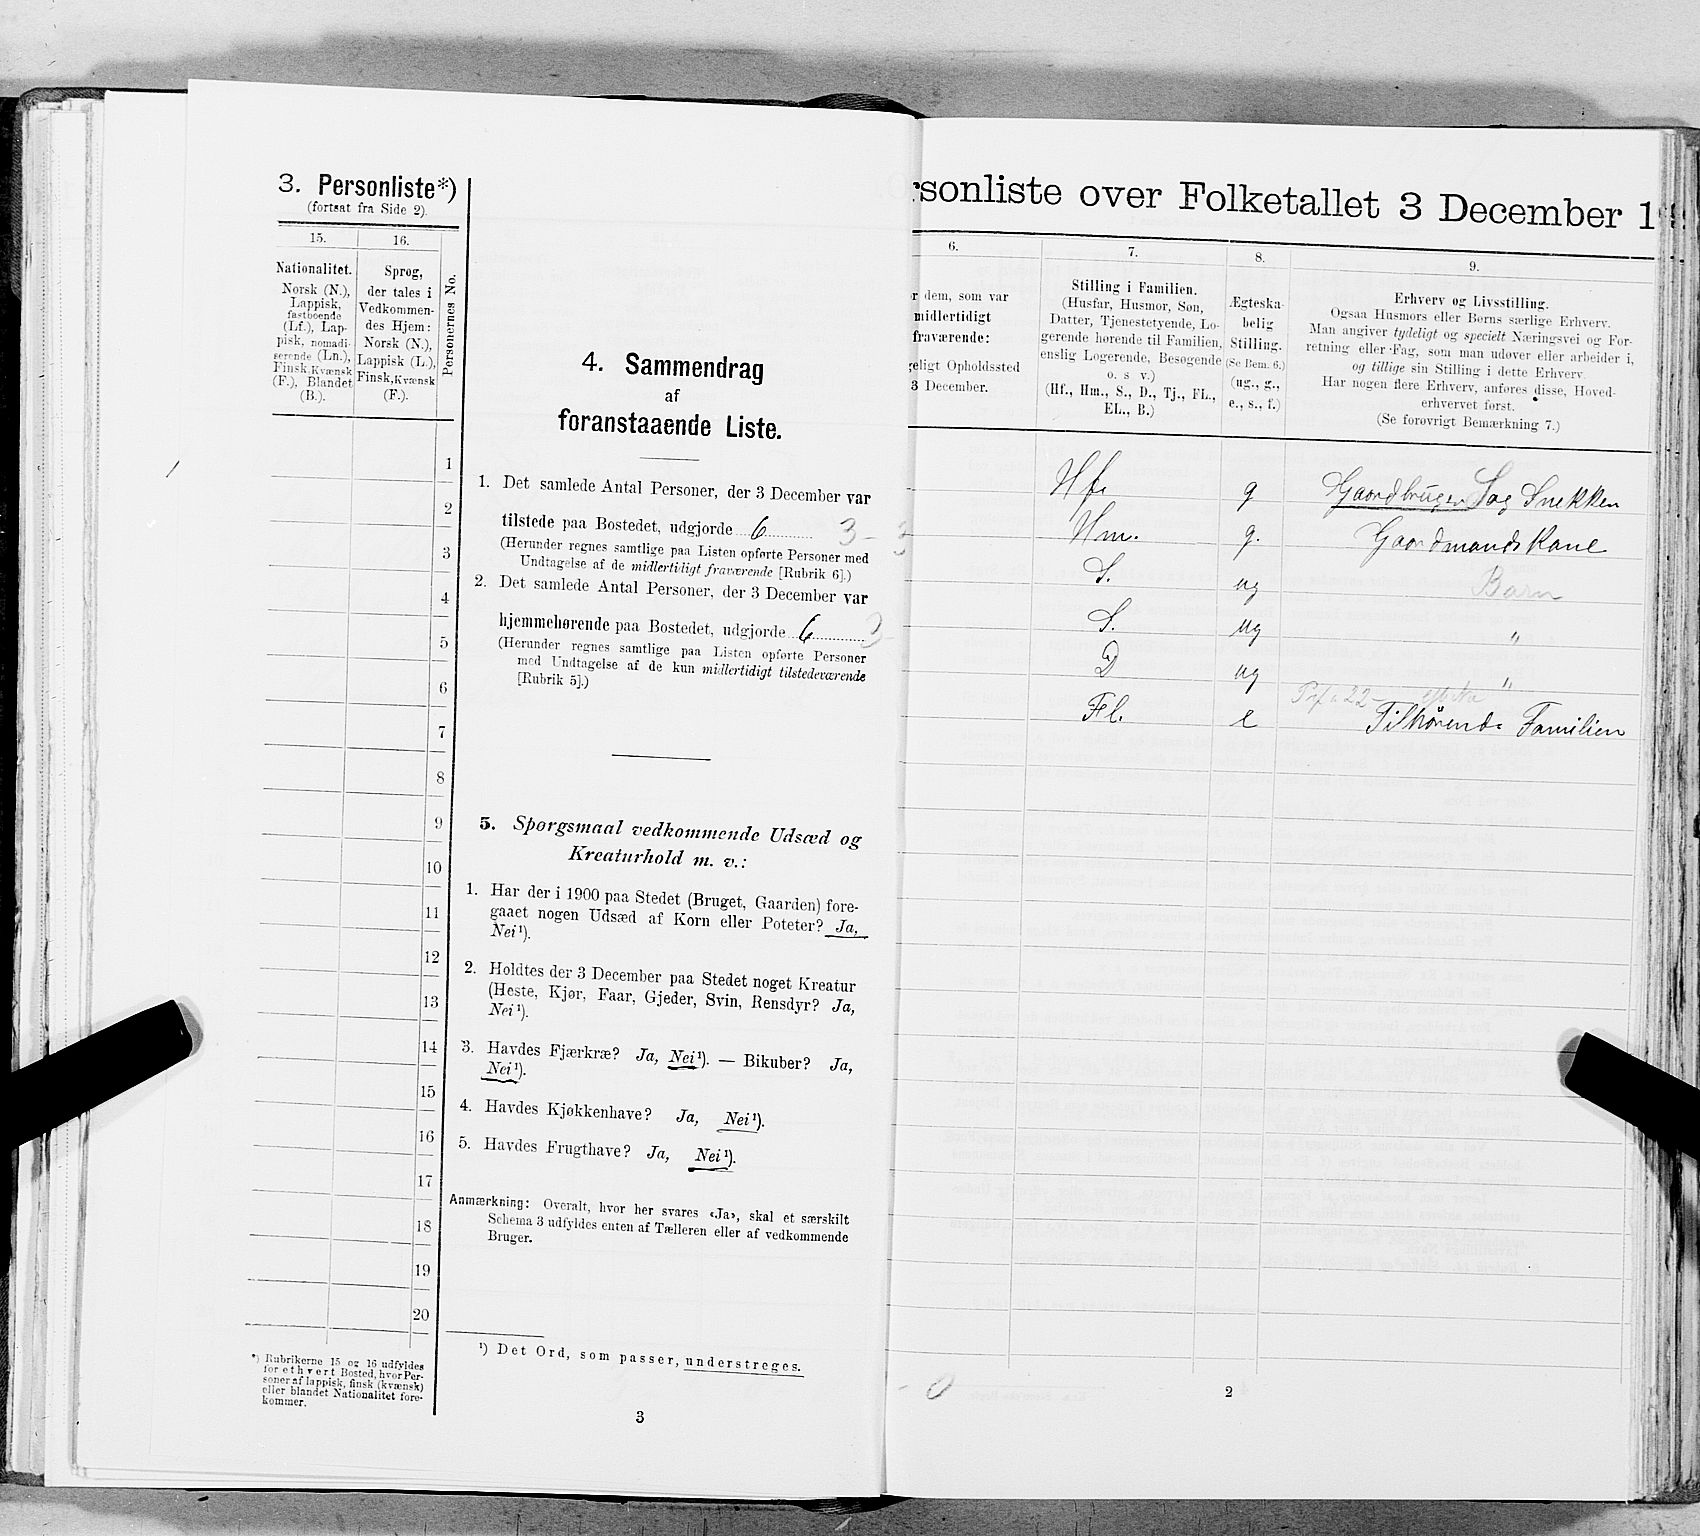 3. Personliste*)
(fortsat fra Side 2).
15.
Nationalitet.
Norsk (N.),
Lappisk,
fastboende
(Lf.), Lap-
pisk, nomadi-
serende (Ln.),
Finsk, Kvænsk
(F.), Blandet
(B.).
16.
Sprog,
der tales i
Vedkommen-
des Hjem:
Norsk (N.),
Lappisk (L.),
Finsk, Kvænsk
(F.).
Personernes No.
1
2
3
4
5
6
7
8
9
10
11
12
13
14
15
16
17
18
19
20
*) Rubrikerne 15 og 16 udfyldes
for ethvert Bosted, hvor Per-
soner af lappisk, finsk (kvænsk)
eller blandet Nationalitet fore-
kommer.
4. Sammendrag
af
foranstaaende Liste.
1. Det samlede Antal Personer, der 3 December var
tilstede paa Bostedet, udgjorde 6 3 - 3
(Herunder regnes samtlige paa Listen opførte Personer med
Undtagelse af de midlertidigt fraværende [Rubrik 6].)
2. Det samlede Antal Personer, der 3 December var
hjemmehørende paa Bostedet, udgjorde 6 3
(Herunder regnes samtlige paa Listen opførte Personer
med Undtagelse af de kun midlertidigt tilstedeværende
[Rubrik 5].)
5. Spørgsmaal vedkommende Udsæd og
Kreaturhold m. v.:
1. Har der i 1900 paa Stedet (Bruget, Gaarden) fore-
gaaet nogen Udsæd af Korn eller Poteter? Ja,
Nei¹).
2. Holdtes der 3 December paa Stedet noget Kreatur
(Heste, Kjør, Faar, Gjeder, Svin, Rensdyr? Ja,
Nei¹).
3. Havdes Fjærkræ? Ja, Nei¹). — Bikuber? Ja,
Nei¹).
4. Havdes Kjøkkenhave? Ja, Nei¹).
5. Havdes Frugthave? Ja, Nei¹).
Anmærkning: Overalt, hvor her svares «Ja», skal et særskilt
Schema 3 udfyldes enten af Tælleren eller af vedkommende
Bruger.
¹) Det Ord, som passer, understreges.
3
rsonliste over Folketallet 3 December 1
6.
r dem, som var
midlertidigt
fraværende:
geligt Opholdssted
3 December.
7.
Stilling i Familien.
(Husfar, Husmor, Søn,
Datter, Tjenestetyende, Lo-
gerende hørende til Familien,
enslig Logerende, Besøgende
o. s v.)
(Hf., Hm., S., D., Tj., FL.,
EL., B.)
8.
Ægteska-
belig
Stilling.
(Se Bem. 6.)
(ug., g.,
e., s., f.)
9.
Erhverv og Livsstilling.
Ogsaa Husmors eller Børns særlige Erhverv.
Man angiver tydeligt og specielt Næringsvei og For-
retning eller Fag, som man udøver eller arbeider i,
og tillige sin Stilling i dette Erhverv.
Har nogen flere Erhverv, anføres disse, Hoved-
erhvervet først.
(Se forøvrigt Bemærkning 7.)
Hf. g Gaardbruger og Snekker
Hm. g. Gaardmands Kone
S. ug Barn
S. ug "
D ug "
Fl. e Tilhørende Familien
0
2